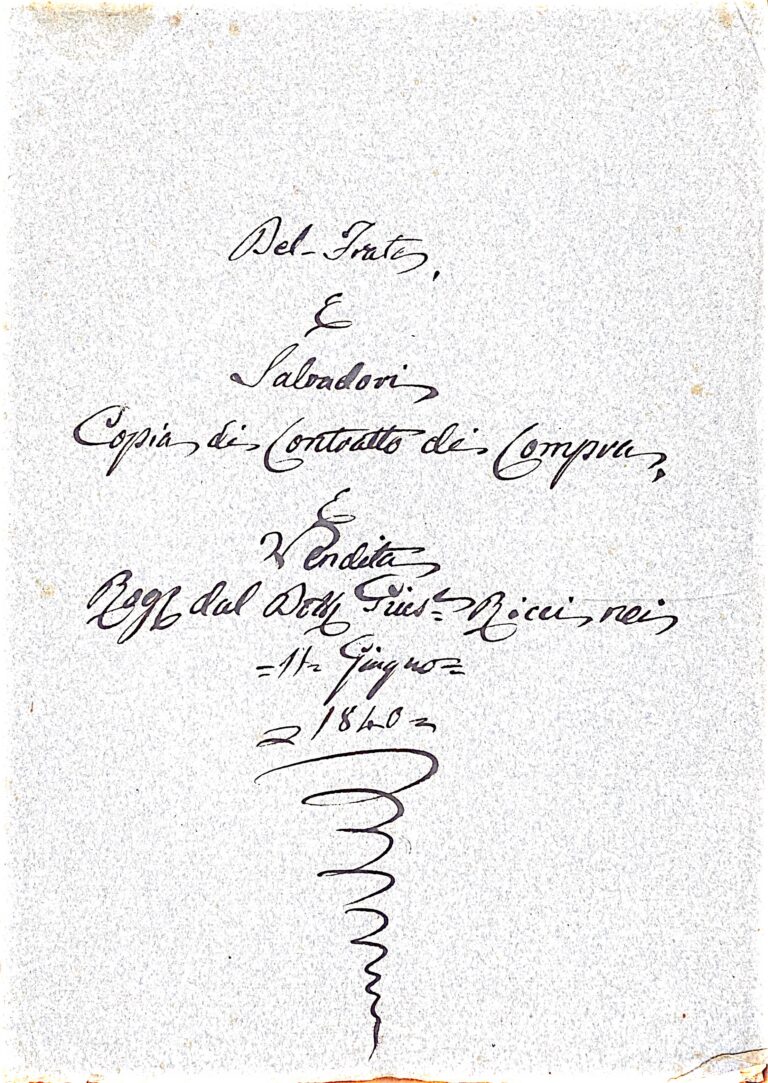 Del-Frate,
E
Salvadori
Copia di Contratto di Compra,
E
Vendita
Rog. dal Dott. Gius.e Ricci nei
=11= Giugno=
=1840=